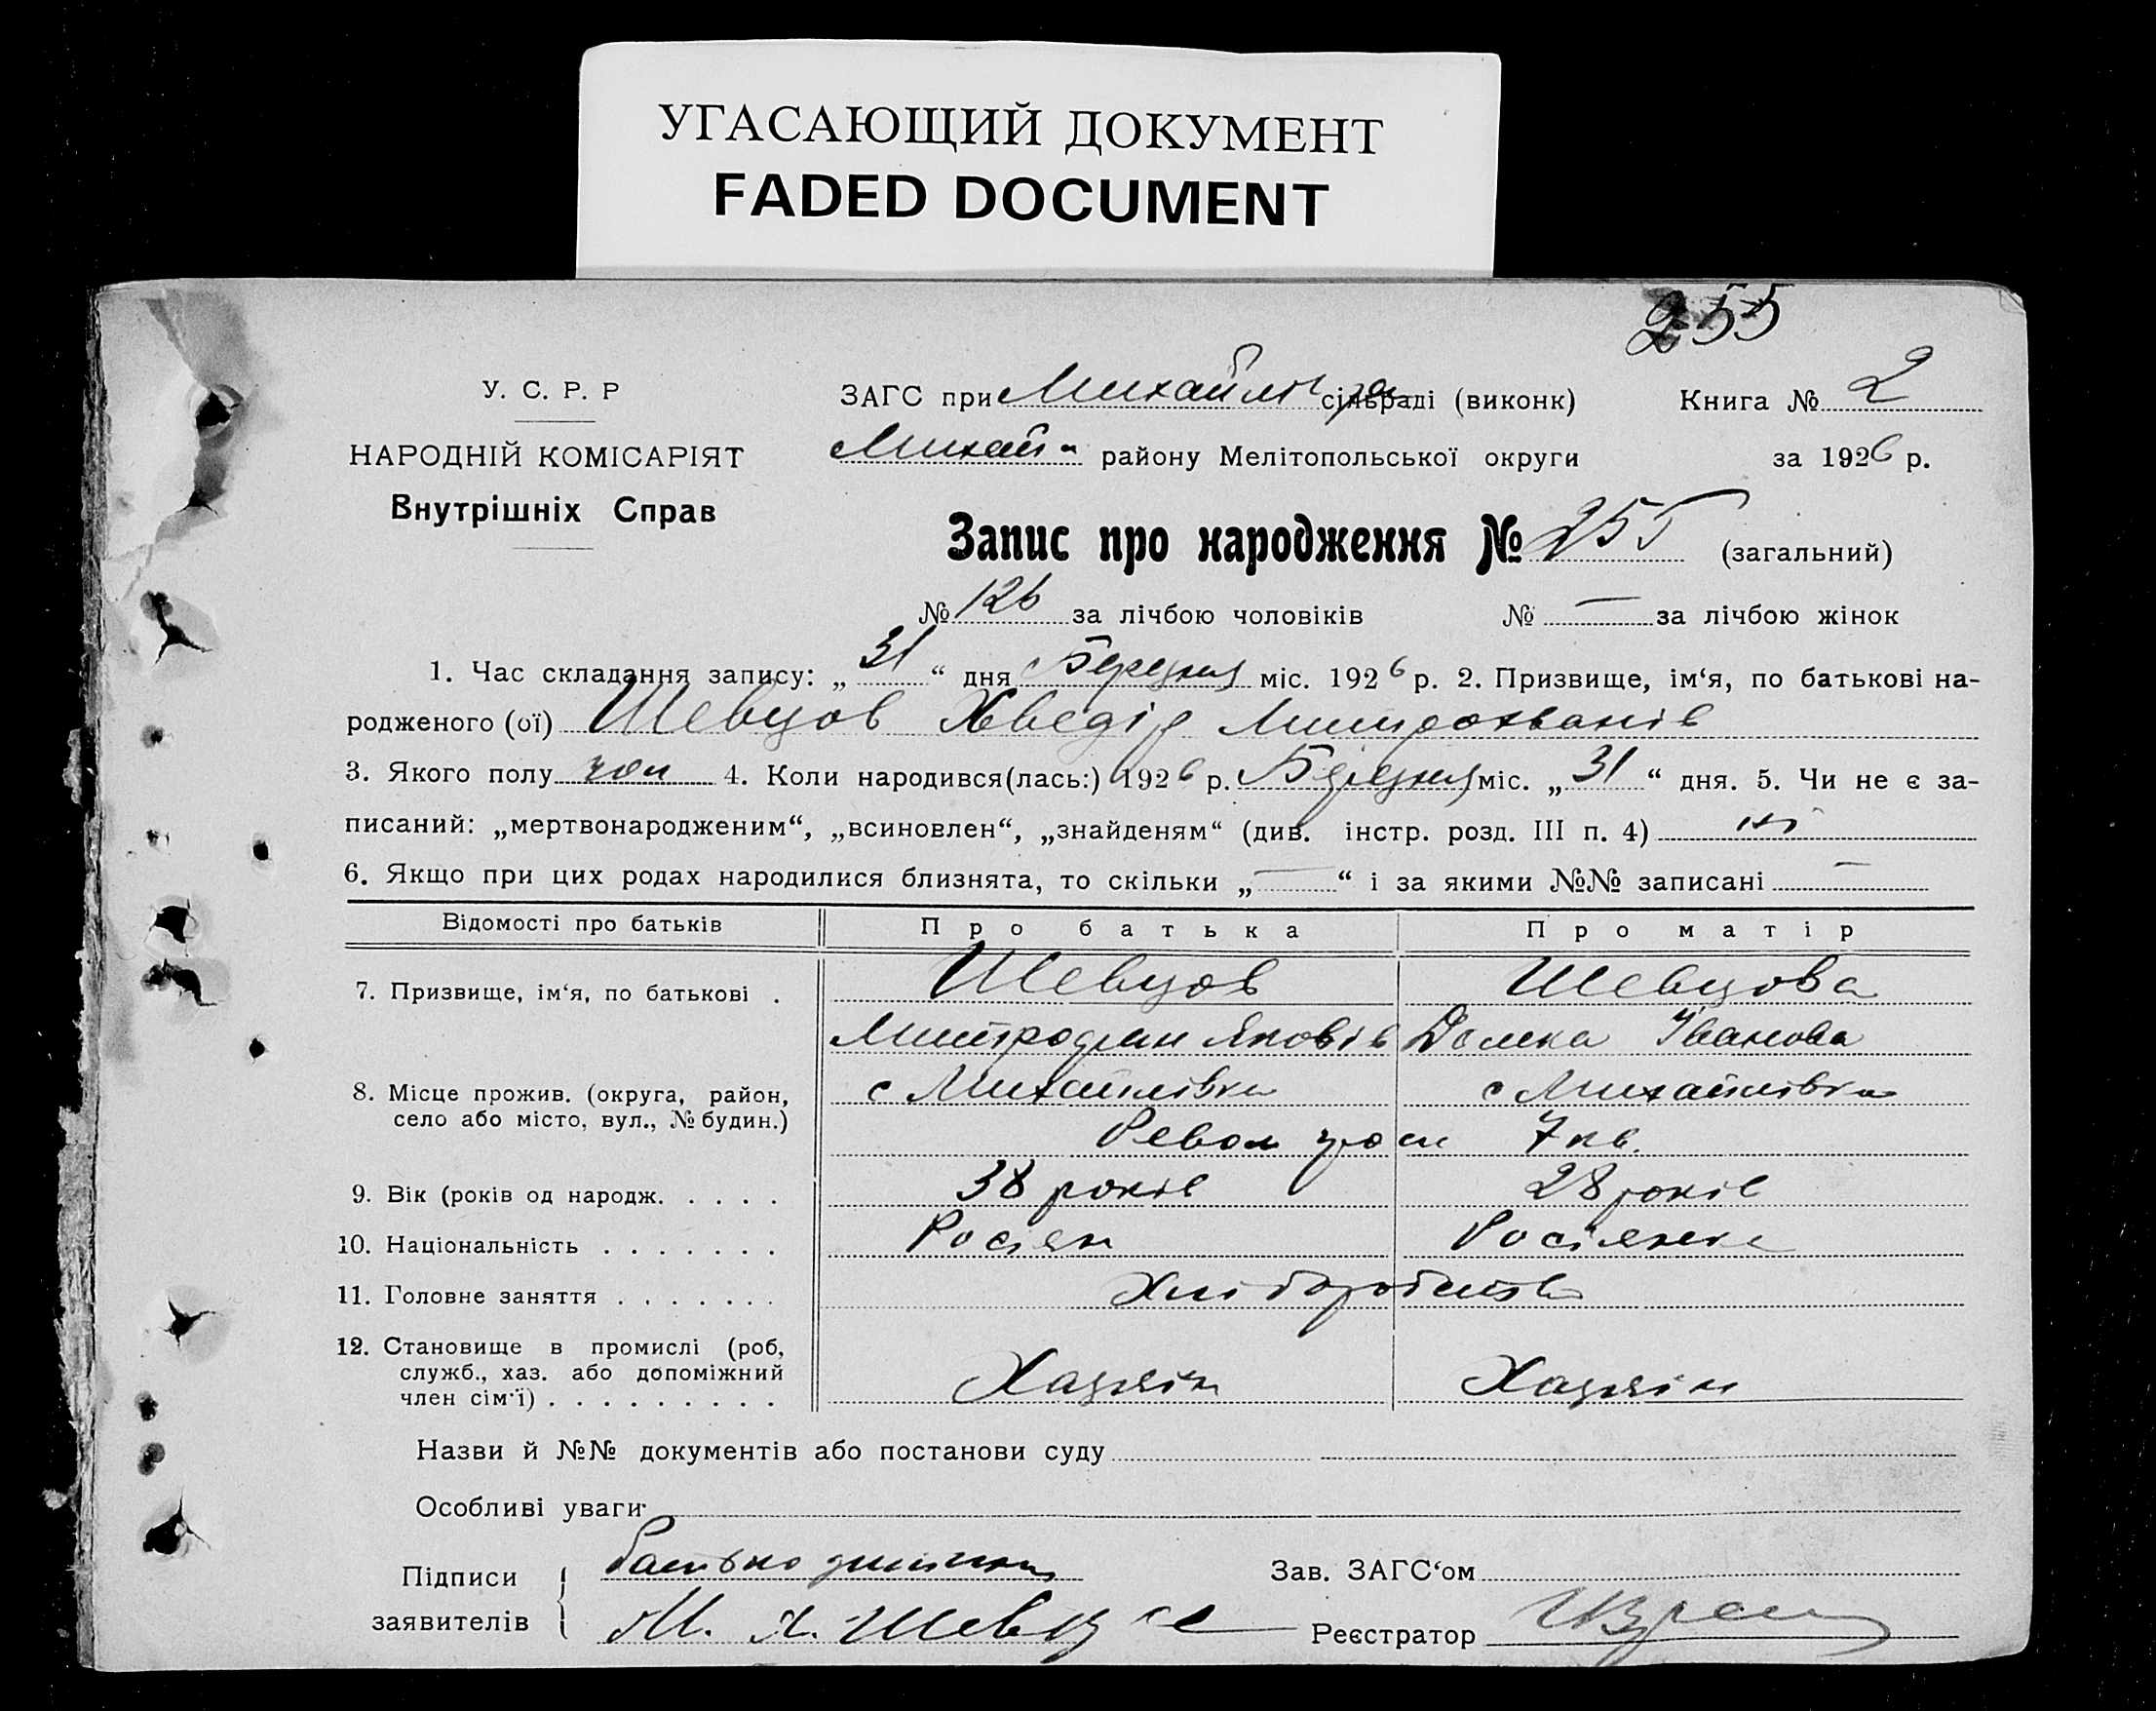 УГАСАЮЩИЙ ДОКУМЕНТ
FADED DOCUMENT
255
У. С. Р. Р
НАРОДНІЙ КОМІСАРІЯТ
Внутрішніх Справ
ЗАГС при Михайлів сільраді (виконк) Книга № 2
Михай району Мелітопольської округи за 1926 р.
Запис про народження № 255 (загальний)
№ 126 за лічбою чоловіків № — за лічбою жінок
1. Час складання запису: „31“ дня Березня міс. 1926 р. 2. Призвище, ім‘я, по батькові на-
родженого (ої) Шевцов Хведір Митрохванів
3. Якого полу чол 4. Коли народився(лась:) 1926 р. Березня міс. „31“ дня. 5. Чи не є за-
писаний: „мертвонародженим“, „всиновлен“, „знайденям“ (див. інстр. розд. III п. 4) ні
6. Якщо при цих родах народилися близнята, то скільки „—“ і за якими №№ записані —
Відомості про батьків Про батька Про матір
7. Призвище, ім‘я, по батькові . Шевцов Шевцова
Митрофан Яковів Домка Іванова
8. Місце прожив. (округа, район, с Михайлівка с Михайлівка
село або місто, вул., № будин.)
Револ 7 кв.
9. Вік (років од народж. . . . . 38 років 28 років
10. Національність . . . . . . . Росіян Росіянка
11. Головне заняття . . . . . . . Хліборобство
12. Становище в промислі (роб,
служб., хаз. або допоміжний
член сім‘ї) . . . . . . . . . Хазяїн Хазяїн
Назви й №№ документів або постанови суду
Особливі уваги
Підписи батько дитини Зав. ЗАГС‘ом
заявителів М. Я. Шевцов Реєстратор